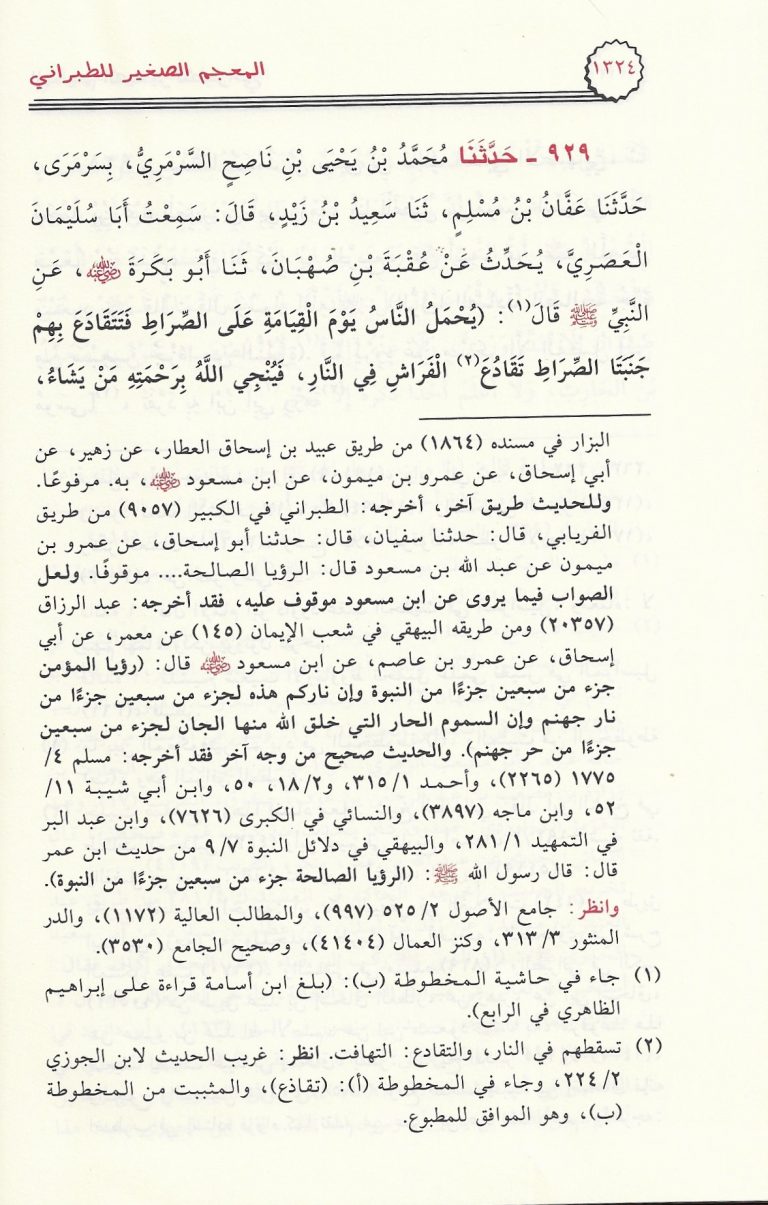 ١٣٢٤
المعجم الصغير للطبراني
٩٢٩ - حَدَّثَنَا مُحَمَّدُ بْنُ يَحْيَى بْنِ نَاصِحٍ السَّرْمَرِيُّ، بِسَرْمَرَى،
حَدَّثَنَا عَفَّانُ بْنُ مُسْلِمٍ، ثَنَا سَعِيدُ بْنُ زَيْدٍ، قَالَ: سَمِعْتُ أَبَا سُلَيْمَانَ
الْعَصَرِيَّ، يُحَدِّثُ عَنْ عُقْبَةَ بْنِ صُهْبَانَ، ثَنَا أَبُو بَكَرَةَ رضي الله عنه، عَنِ
النَّبِيِّ ﷺ قَالَ(١): (يُحْمَلُ النَّاسُ يَوْمَ الْقِيَامَةِ عَلَى الصِّرَاطِ فَتَتَقَادَعَ بِهِمْ
جَنَبَتَا الصِّرَاطِ تَقَادُعَ(٢) الْفَرَاشِ فِي النَّارِ، فَيُنْجِي اللَّهُ بِرَحْمَتِهِ مَنْ يَشَاءُ،
البزار في مسنده (١٨٦٤) من طريق عبيد بن إسحاق العطار، عن زهير، عن
أبي إسحاق، عن عمرو بن ميمون، عن ابن مسعود رضي الله عنه، به. مرفوعًا.
وللحديث طريق آخر، أخرجه: الطبراني في الكبير (٩٠٥٧) من طريق
الفريابي، قال: حدثنا سفيان، قال: حدثنا أبو إسحاق، عن عمرو بن
ميمون عن عبد الله بن مسعود قال: الرؤيا الصالحة.... موقوفًا. ولعل
الصواب فيما يروى عن ابن مسعود موقوف عليه، فقد أخرجه: عبد الرزاق
(٢٠٣٥٧) ومن طريقه البيهقي في شعب الإيمان (١٤٥) عن معمر، عن أبي
إسحاق، عن عمرو بن عاصم، عن ابن مسعود رضي الله عنه قال: (رؤيا المؤمن
جزء من سبعين جزءًا من النبوة وإن ناركم هذه لجزء من سبعين جزءًا من
نار جهنم وإن السموم الحار التي خلق الله منها الجان لجزء من سبعين
جزءًا من حر جهنم). والحديث صحيح من وجه آخر فقد أخرجه: مسلم ٤/
١٧٧٥ (٢٢٦٥)، وأحمد ٣١٥/١، و١٨/٢، ٥٠، وابن أبي شيبة ١١/
٥٢، وابن ماجه (٣٨٩٧)، والنسائي في الكبرى (٧٦٢٦)، وابن عبد البر
في التمهيد ٢٨١/١، والبيهقي في دلائل النبوة ٩/٧ من حديث ابن عمر
قال: قال رسول الله ﷺ: (الرؤيا الصالحة جزء من سبعين جزءًا من النبوة).
وانظر: جامع الأصول ٥٢٥/٢ (٩٩٧)، والمطالب العالية (١١٧٢)، والدر
المنثور ٣١٣/٣، وكنز العمال (٤١٤٠٤)، وصحيح الجامع (٣٥٣٠).
(١) جاء في حاشية المخطوطة (ب): (بلغ ابن أسامة قراءة على إبراهيم
الظاهري في الرابع).
(٢) تسقطهم في النار، والتقادع: التهافت. انظر: غريب الحديث لابن الجوزي
٢٢٤/٢، وجاء في المخطوطة (أ): (تقاذع)، والمثبت من المخطوطة
(ب)، وهو الموافق للمطبوع.